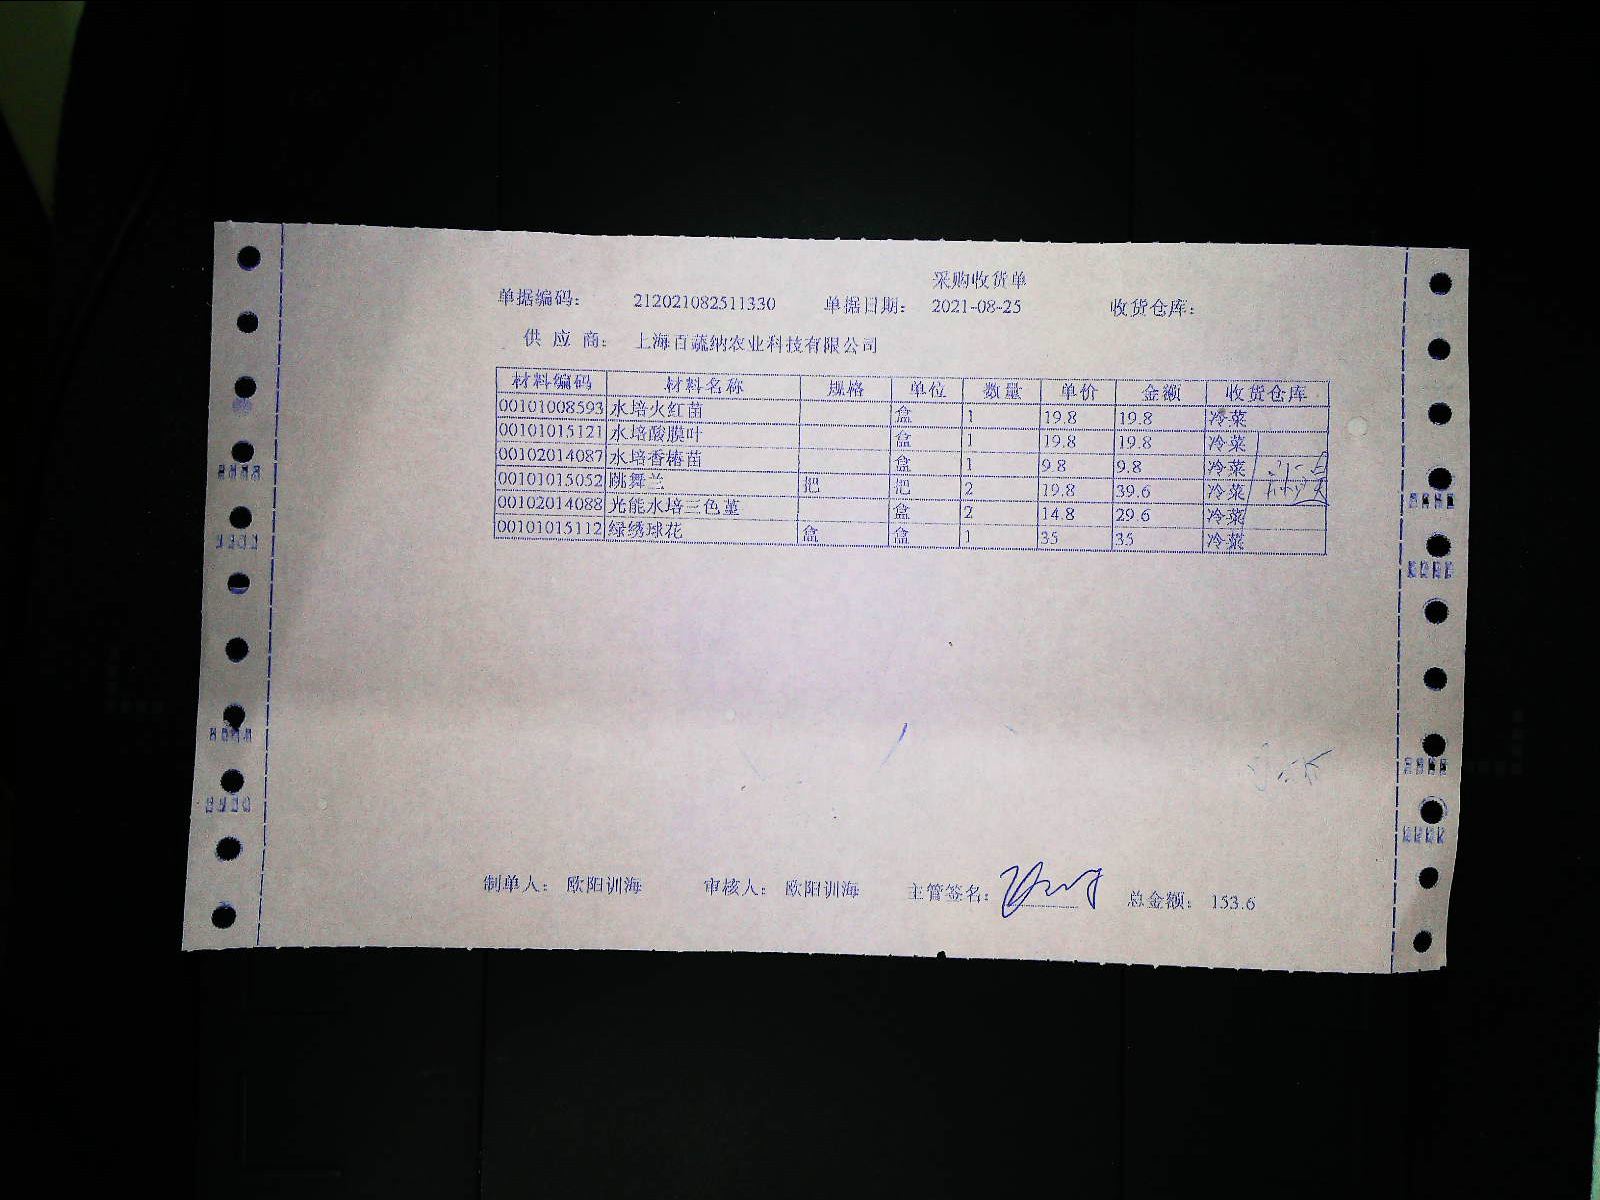 采购收货单
单据编码: 212021082511330 单据日期: 2021-08-25 收货仓库:
供 应 商: 上海百蔬纳农业科技有限公司
材料编码 材料名称 规格 单位 数量 单价 金额 收货仓库
00101008593 水培火红苗 盒 1 19.8 19.8 冷菜
00101015121 水培酸膜叶 盒 1 19.8 19.8 冷菜
00102014087 水培香椿苗 盒 1 9.8 9.8 冷菜
00101015052 跳舞兰 把 把 2 19.8 39.6 冷菜
00102014088 光能水培三色堇 盒 2 14.8 29.6 冷菜
00101015112 绿绣球花 盒 盒 1 35 35 冷菜
制单人: 欧阳训海 审核人: 欧阳训海 主管签名: 总金额: 153.6